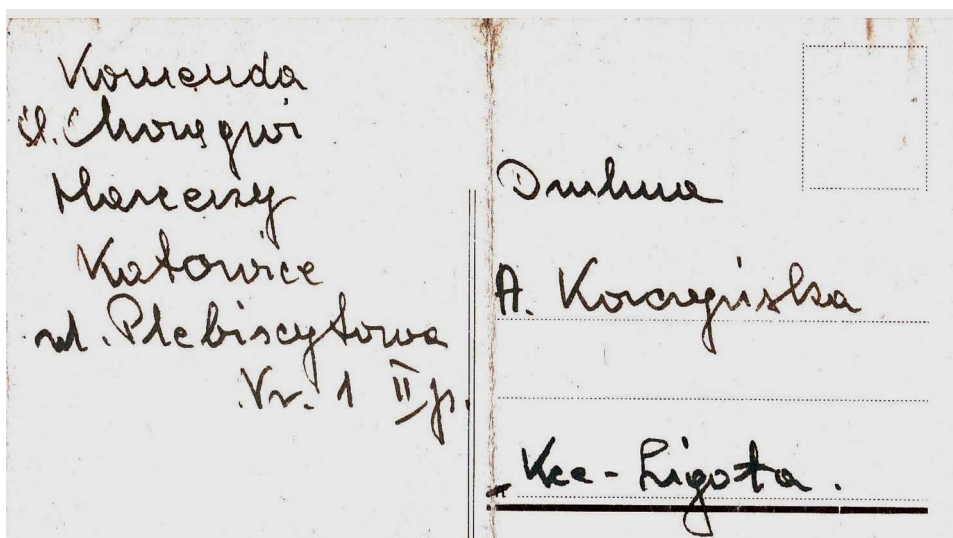 Komenda
Śl. Chorągwi
Harcerzy
Katowice
ul. Plebiscytowa
Nr. 1 II p.
Druhna
A. Korczyńska
Kce - Ligota.